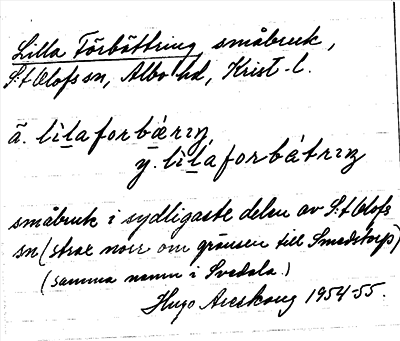 Lilla Förbättring, småbruk,
S:t Olofs sn, Albo hd, Krist-l.
ä. lìlaforbæ̀rıŋ
y. lìláforbátrıŋ
småbruk i sydligaste delen av S:t Olofs
sn (strax norr om gränsen till Smedstorp)
(samma namn i Svedala.)
Hugo Areskoug 1954-55.